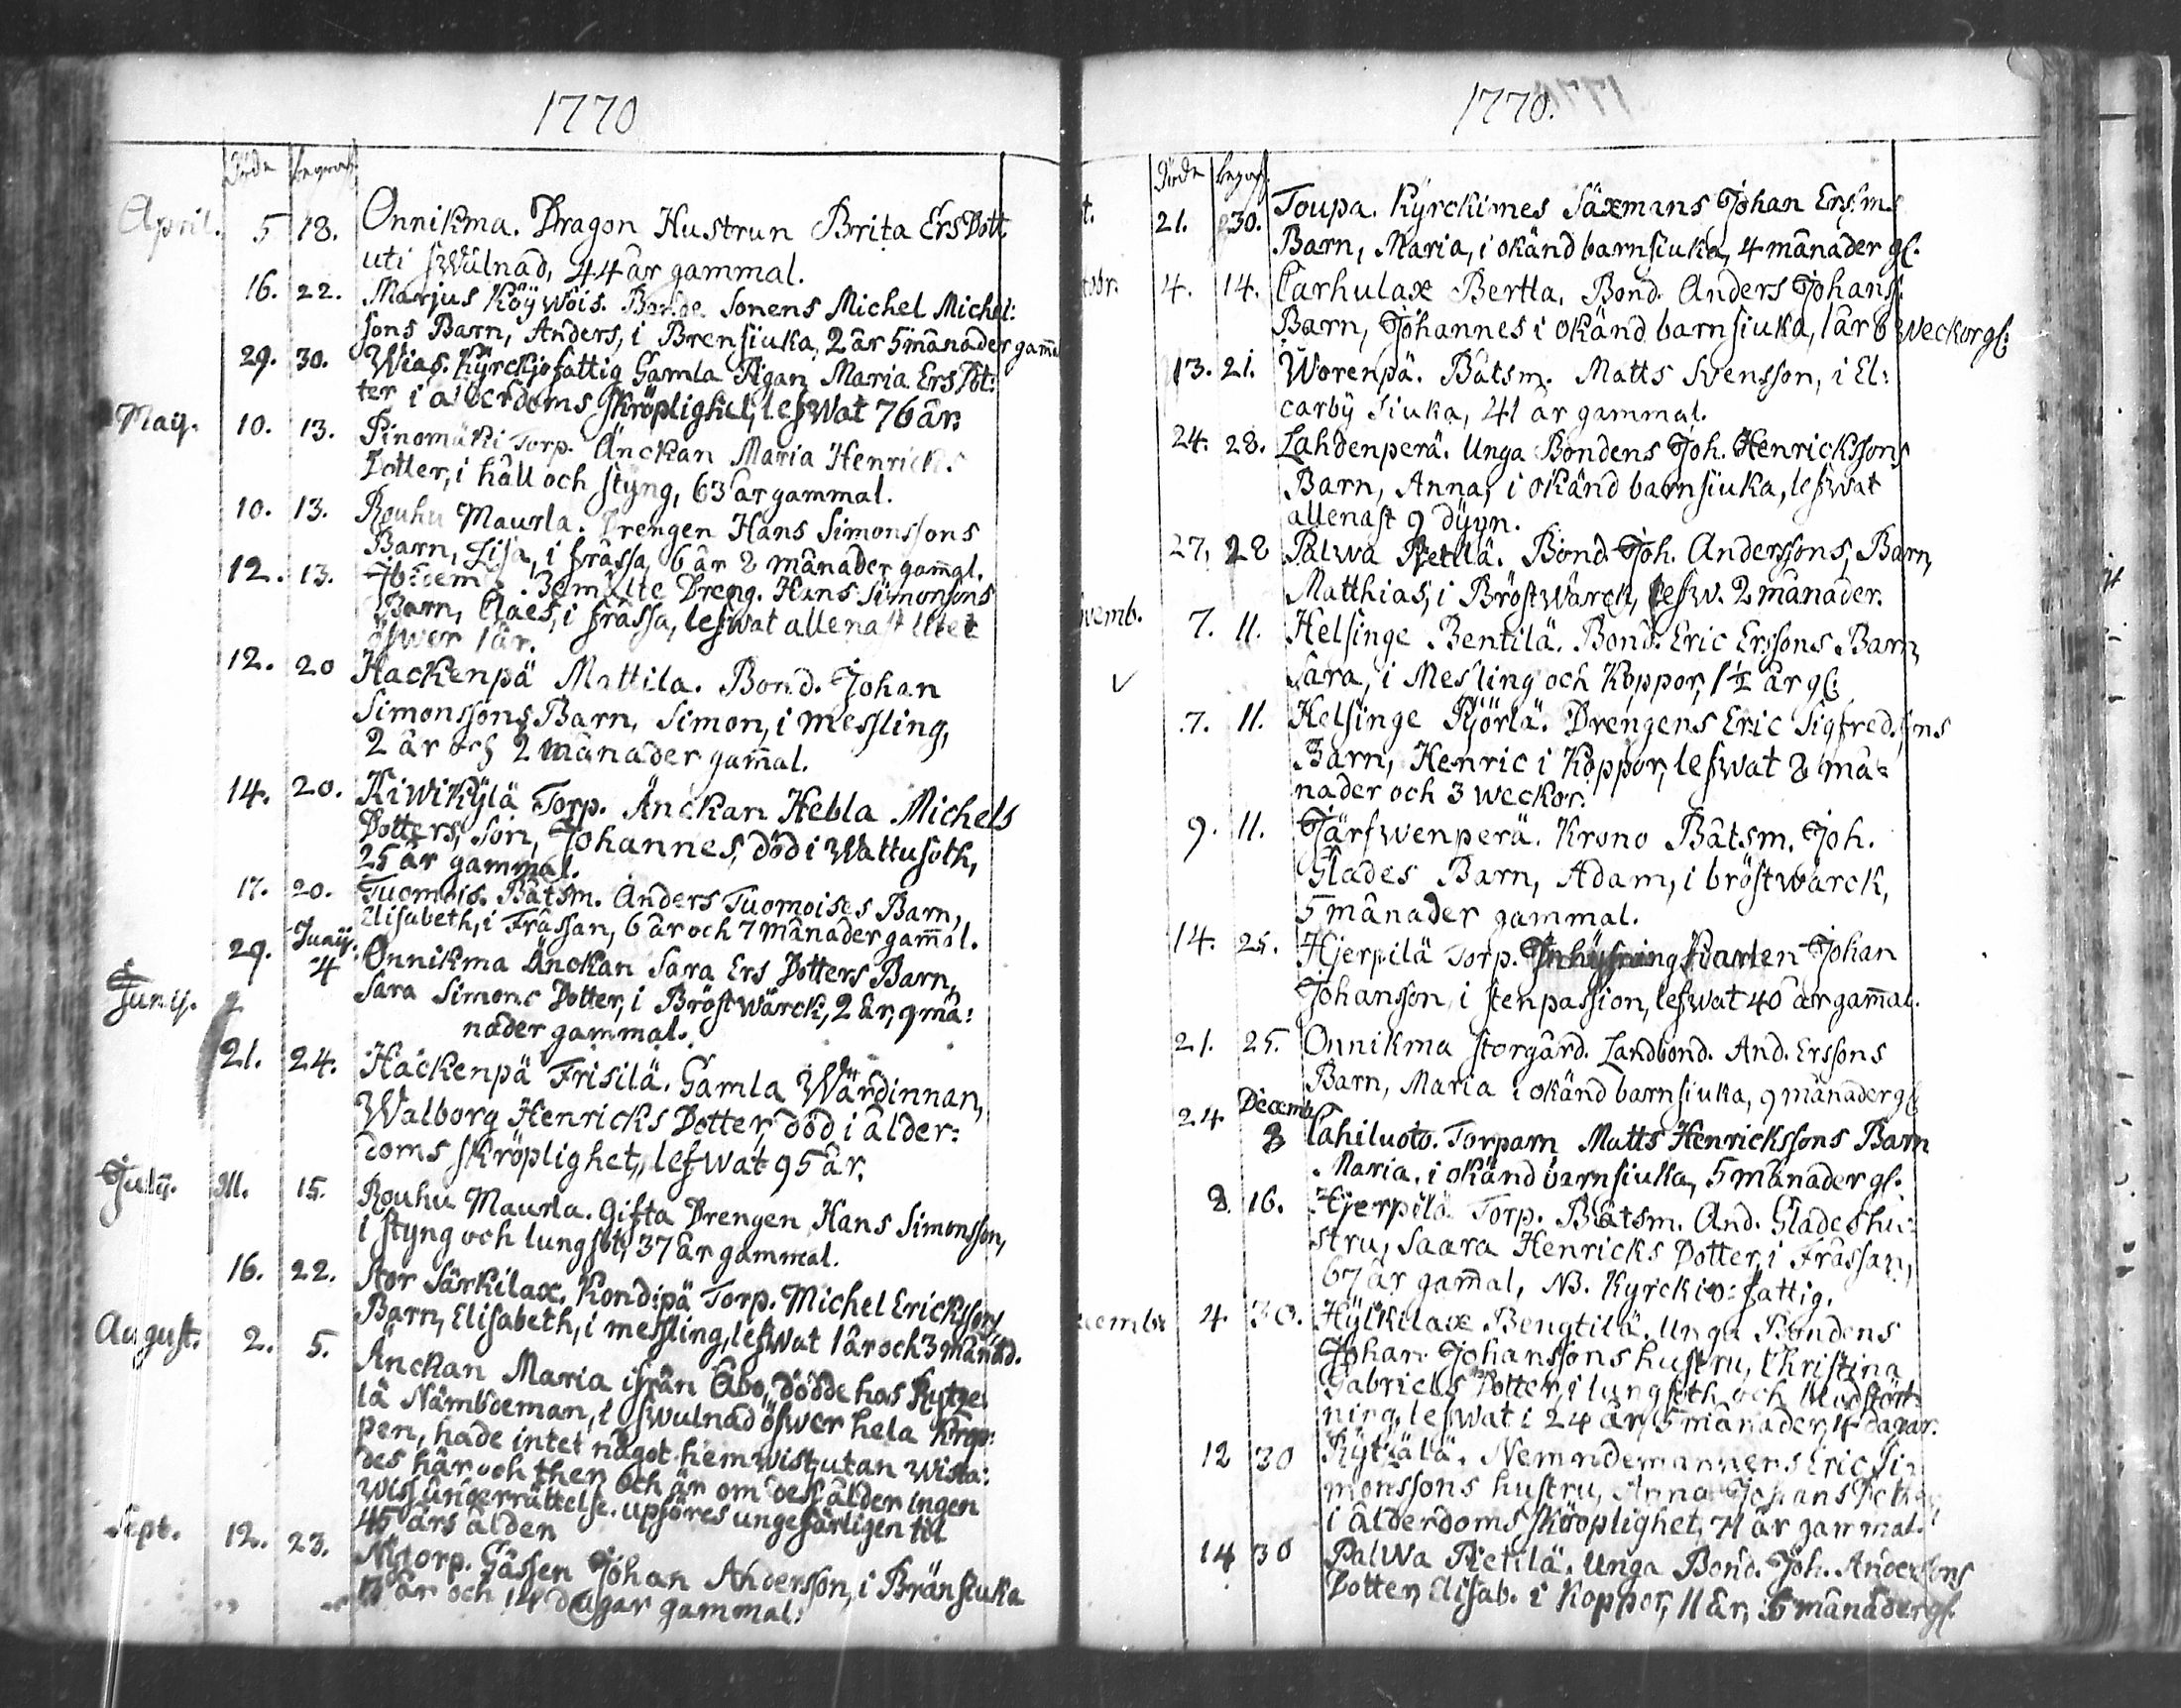 1770
Döde begrafn
April. 5 18. Onnikma. Dragon Hustrun Brita Ers Dott.
uti swulnad, 44 år gammal.
16. 22. Marjus Köÿwois. Bonde Sonens Michel Michel:
sons Barn, Anders, i Brensiuka, 2 år 5 månader gam̄
29. 30. Wias. Kÿrckjofattig Gamla Pigan Maria Ers Dot:
ter i ålderdoms skröplighet, lefwat 76 år.
Maij. 10. 13. Pinomäki Torp. Änckan Maria Henricks
Dotter, i håll och stÿng, 63 år gammal.
10. 13. Rouhu Maurla. Drengen Hans Simonssons
Barn, Lisa, i frässa, 6 år 8 månader gam̄al.
12. 13. Ibidem. Bemälte Dreng. Hans Simonsons
Barn, Claes, i frässa, lefwat allenast litet
öfwer 1 år.
12. 20 Hackenpä Mattila. Bond. Johan
Simonssons Barn, Simon, i messling,
2 år och 2 månader gam̄al.
14. 20. Kiwikÿlä Torp. Änckan Hebla Michels
Dotters, Son, Johannes, död i Wattusoth,
25 år gammal.
17. 20. Tuomois. Båtsm. Anders Tuomoises Barn,
Elisabeth, i Frässan, 6 år och 7 månader gam̄al.
29. Junij. 4 Onnikma Änckan Sara Ers Dotters Barn,
Junij. Sara Simons Dotter, i Bröstwärck, 2 år, 9 må:
nader gammal.
21. 24. Hackenpä Frisilä. Gamla Wärdinnan,
Walborg Henricks Dotter, död i ålder:
doms skröplighet, lefwat 95 år.
Julij. 11. 15. Rouhu Maurla. Gifta Drengen Hans Simonsson,
i stÿng och lungsot, 37 år gammal.
16. 22. Stor Särkilax. Kondipä Torp. Michel Ericksons
Barn, Elisabeth, i messling, lefwat 1 år och 3 månad.
August. 2. 5. Änckan Maria ifrån Åbo, dödde hos
lä Nämbdeman, i swulnad öfwer hela Krop:
pen, hade intet något hemwist, utan wista:
des här och ther, och är om dess ålder ingen
wiss underrättelse. upföres ungefärligen til
45 års ålder
Sept. 12. 23. Nÿtorp. Gåssen Johan Andersson, i Bränsiuka
år och 14 dagar gammal.
1770.
Döde begrafn.
21. 30. Toupa. Kÿrckimes Säxmans Johan Ersm.
Barn, Maria, i okänd barnsiuka, 4 månader gl.
4. 14. Carhulax Bertla. Bond. Anders Johans:
Barn, Johannes i okänd barnsiuka, 1 år 8 weckor gl:
13. 21. Worenpä. Båtsm. Matts Svensson, i El:
carbÿ siuka, 41 år gammal.
24. 28. Lahdenperä. Unga Bondens Joh. Henrickssons
Barn, Anna, i okänd barnsiuka, lefwat
allenast 9 dÿgn.
27, 28 Palwa Pietilä. Bond. Joh. Anderssons, Barn,
Matthias, i Bröstwärck, lefw. 2 månader.
vemb. 7. 11. Helsinge Bentilä. Bond. Eric Erssons Barn,
Sara, i Mesling och Koppor, 1 1/2 år gl:
7. 11. Helsinge Pÿörlä. Drengens Eric Sigfredsons
Barn, Henric i Koppor, lefwat 8 må=
nader och 3 weckor.
9. 11. Järfwenperä. Krono Båtsm. Joh.
Glades Barn, Adam, i bröstwärck,
5 månader gammal.
14. 25. Hjerpilä Torp. Johan
Johansson, i stenpassion, lefwat 40 år gam̄al.
21. 25. Onnikma Storgård. Landbond. And. Erssons
Barn, Maria i okänd barnsiuka, 9 månader gl
24 Decemb. 8 Lahiluoto. Torparn Matts Henrickssons Barn
Maria, i okänd barnsiuka, 5 månader gl.
8. 16. Hjerpilä Torp. Båtsm. And. Glades hu:
stru, Saara Henricks Dotter, i Frässan,
67 år gam̄al, NB. Kyrckio: fattig.
cember 4. 30. Hÿlkilax Bengtilä. Unga Bondens
Johan Johanssons hustru, Christina
Gabriels Dotter, i lungsoth och blodstört:
ning, lefwat i 24 år, 5 månader, 4 dagar.
12 30 Kÿtzälä. Nemndemannens Eric Si:
monssons hustru, Anna Johans Dotter,
i ålderdoms skröplighet, 71 år gammal.
14 30 Palwa Pietilä. Unga Bond. Joh. Anderssons
Dotter, Elisab. i Koppor, 11 år, 6 månader gl.